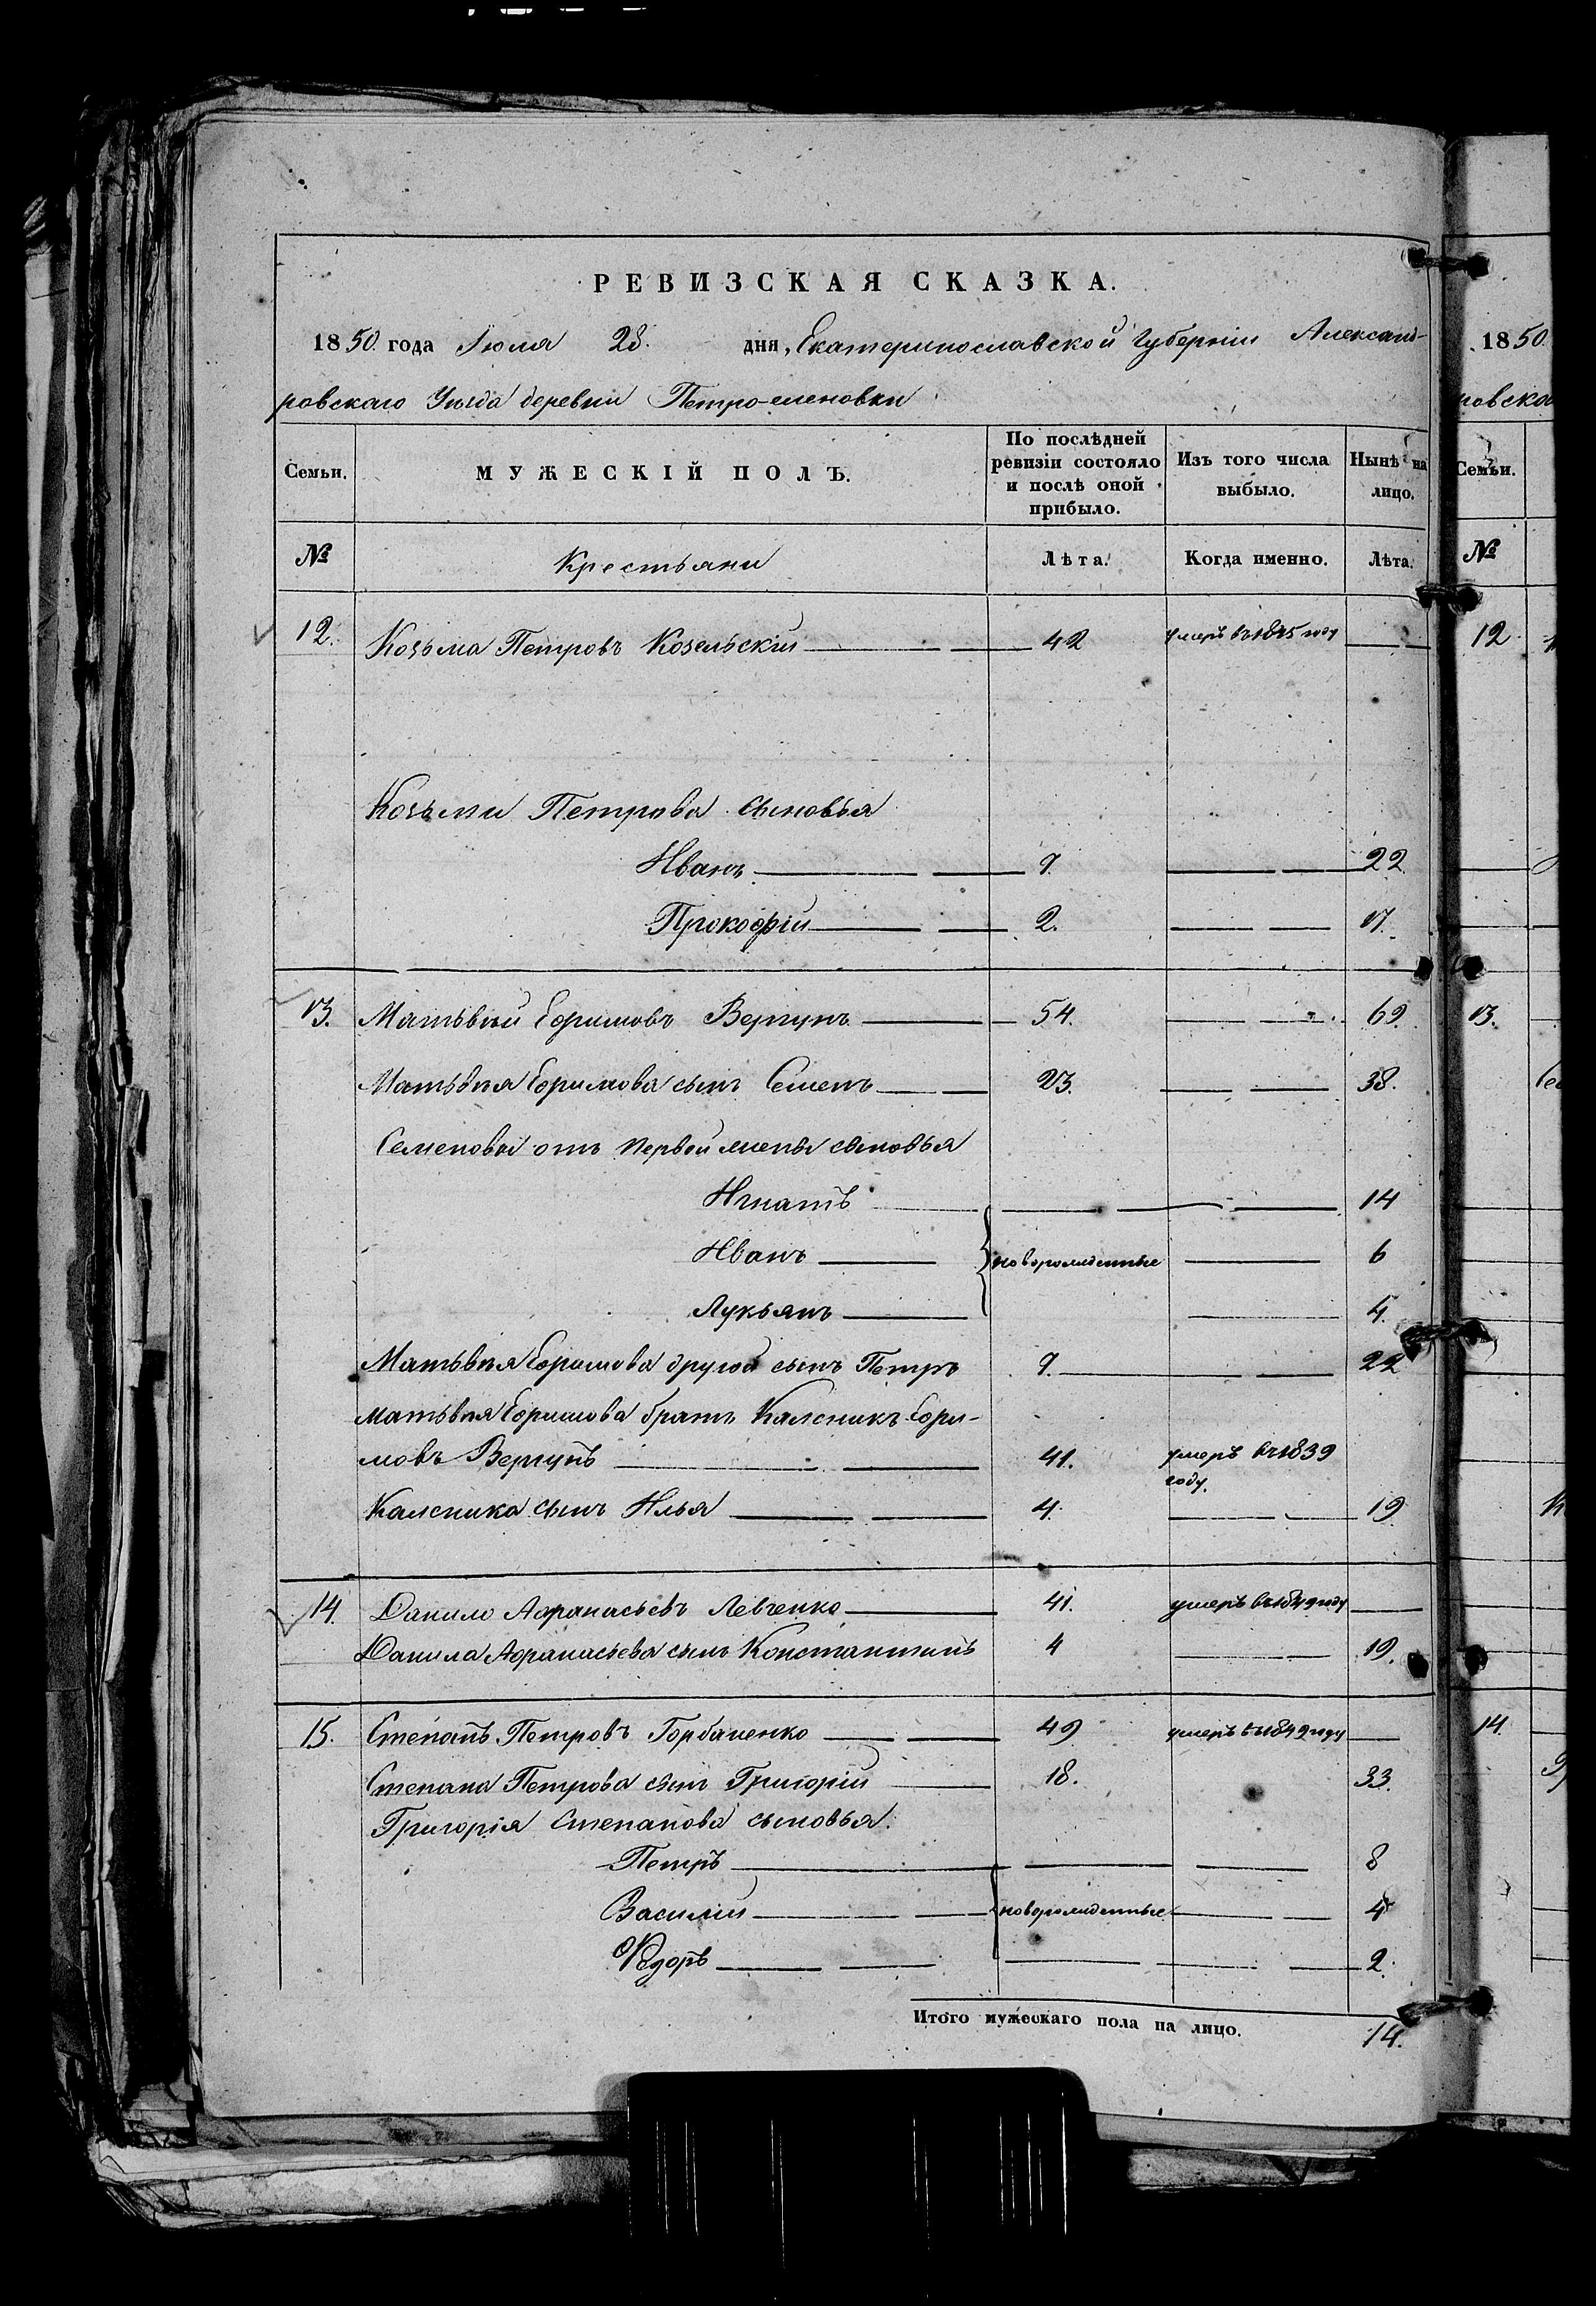 РЕВИЗСКАЯ СКАЗКА.
1850 года Іюля 28. дня, Екатеринославской Губерніи Александ-
ровскаго Уѣзда деревни Петро-еленовки
Семьи.
МУЖЕСКІЙ ПОЛЪ.
По послѣдней ревизіи состояло и послѣ оной прибыло.
Изъ того числа выбыло.
Нынѣ на лицо.
№
Крестьяни
Лѣта.
Когда именно.
Лѣта.
12. Козьма Петровъ Козельскій 42 умеръ въ 1845 году
Козьми Петрова сыновья
Иванъ 7. 22
Прокофій 2. 17.
13. Матьвѣй Ефимовъ Вергунъ 54. 69.
Матьвѣя Ефимова сынъ Семенъ 23. 38.
Семеновы отъ первой жены сыновья
Игнатъ 14
Иванъ новорожденные 6
Лукьянъ 4.
Матьвѣя Ефимова другой сынъ Петръ 7. 22
Матьвѣя Ефимова братъ Калсникъ Ефи-
мовъ Вергунъ 41. умеръ въ 1839 году.
Калсника сынъ Илья 4. 19
14. Данило Афанасьевъ Левченко 41. умеръ въ 1849 году
Данила Афанасьева сынъ Константинъ 4 19.
15. Степанъ Петровъ Горбаченко 49 умеръ въ 1849 году
Степана Петрова сынъ Григорій 18. 33.
Григорія Степанова сыновья.
Петръ 8
Василій новорожденные 4
Федоръ 2.
Итого мужескаго пола на лицо. 14.
1850.
ровска
Семьи.
№
12
13.
14